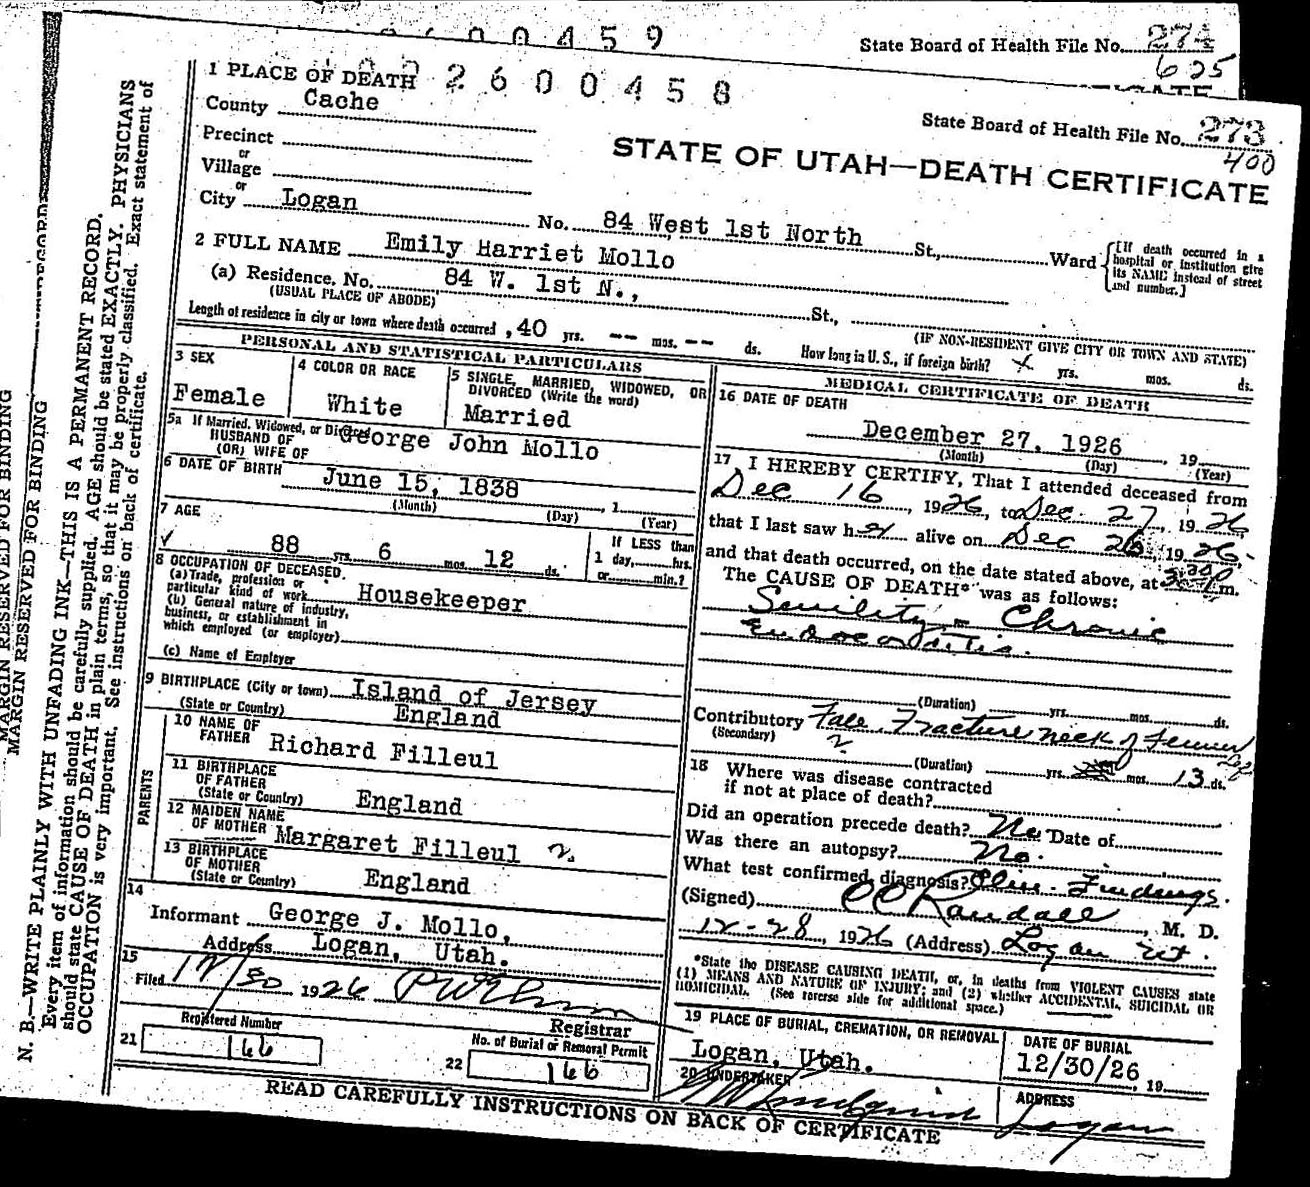 2600459
State Board of Health File No. 274
625
2600458
State Board of Health File No. 273
400
STATE OF UTAH—DEATH CERTIFICATE
1 PLACE OF DEATH
County Cache
Precinct
or
Village
or
City Logan No. 84 West 1st North St., Ward {[If death occurred in a hospital or institution give its NAME instead of street and number.]
2 FULL NAME Emily Harriet Mollo
(a) Residence. No. 84 W. 1st N., St.,
(USUAL PLACE OF ABODE) (IF NON-RESIDENT GIVE CITY OR TOWN AND STATE)
Length of residence in city or town where death occurred, 40 yrs. -- mos. -- ds. How long in U. S., if foreign birth? yrs. mos. ds.
PERSONAL AND STATISTICAL PARTICULARS
3 SEX
Female
4 COLOR OR RACE
White
5 SINGLE, MARRIED, WIDOWED, OR
DIVORCED (Write the word)
Married
5a If Married, Widowed, or Divorced
HUSBAND OF
(OR) WIFE OF
George John Mollo
6 DATE OF BIRTH
June 15, 1838, 1
(Month) (Day) (Year)
7 AGE
88 yrs. 6 mos. 12 ds.
If LESS than
1 day, hrs.
or min.?
8 OCCUPATION OF DECEASED.
(a) Trade, profession or
particular kind of work Housekeeper
(b) General nature of industry,
business, or establishment in
which employed (or employer)
(c) Name of Employer
9 BIRTHPLACE (City or town) Island of Jersey
(State or Country) England
PARENTS
10 NAME OF
FATHER Richard Filleul
11 BIRTHPLACE
OF FATHER
(State or Country) England
12 MAIDEN NAME
OF MOTHER Margaret Filleul
13 BIRTHPLACE
OF MOTHER
(State or Country) England
14
Informant George J. Mollo,
Address Logan, Utah.
15
Filed 12/30 1926
Registrar
21 Registered Number
166
22 No. of Burial or Removal Permit
166
MEDICAL CERTIFICATE OF DEATH
16 DATE OF DEATH
December 27, 1926, 19
(Month) (Day) (Year)
17 I HEREBY CERTIFY, That I attended deceased from
Dec 16 1926, to Dec. 27, 1926
that I last saw her alive on Dec 26 1926.
and that death occurred, on the date stated above, at 3:30 p m.
The CAUSE OF DEATH* was as follows:
Senility - Chronic
Endocarditis.
(Duration) yrs. mos. ds.
Contributory Fall. Fracture neck of femur
(Secondary)
(Duration) yrs. mos. 13 ds.
18 Where was disease contracted
if not at place of death?
Did an operation precede death? No Date of
Was there an autopsy? No.
What test confirmed diagnosis? Clin. Findings.
(Signed) Randall, M. D.
12-28, 1926 (Address) Logan Ut.
*State the DISEASE CAUSING DEATH, or, in deaths from VIOLENT CAUSES state
(1) MEANS AND NATURE OF INJURY; and (2) whether ACCIDENTAL, SUICIDAL OR
HOMICIDAL. (See reverse side for additional space.)
19 PLACE OF BURIAL, CREMATION, OR REMOVAL
Logan, Utah.
DATE OF BURIAL
12/30/26 19
20 UNDERTAKER
Lindquist
ADDRESS
Logan
READ CAREFULLY INSTRUCTIONS ON BACK OF CERTIFICATE
MARGIN RESERVED FOR BINDING
MARGIN RESERVED FOR BINDING
N. B.—WRITE PLAINLY WITH UNFADING INK—THIS IS A PERMANENT RECORD.
Every item of information should be carefully supplied. AGE should be stated EXACTLY. PHYSICIANS
should state CAUSE OF DEATH in plain terms, so that it may be properly classified. Exact statement of
OCCUPATION is very important. See instructions on back of certificate.